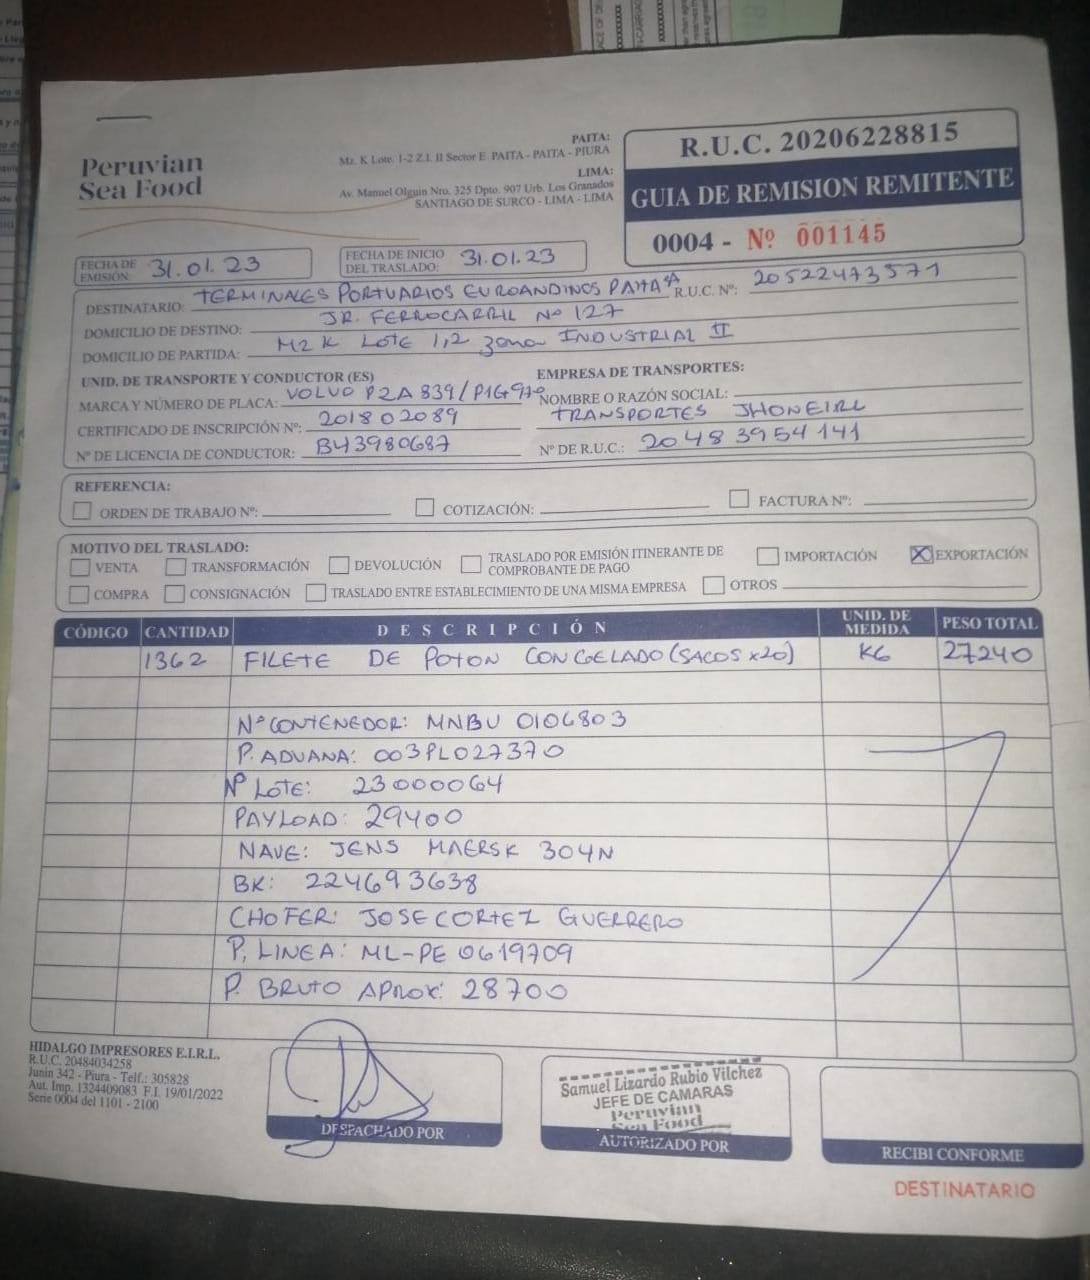 Peruvian
Sea Food
PAITA:
Mz. K Lote. 1-2 Z.I. II Sector E PAITA - PAITA - PIURA
LIMA:
Av. Manuel Olguin Nro. 325 Dpto. 907 Urb. Los Granados
SANTIAGO DE SURCO - LIMA - LIMA
R.U.C. 20206228815
GUIA DE REMISION REMITENTE
0004 - Nº 001145
FECHA DE EMISIÓN: 31.01.23
FECHA DE INICIO DEL TRASLADO: 31.01.23
DESTINATARIO: TERMINALES PORTUARIOS EUROANDINOS PAITA SA R.U.C. Nº: 20522473571
DOMICILIO DE DESTINO: JR. FERROCARRIL Nº 127
DOMICILIO DE PARTIDA: MZ K LOTE 1,2 zona INDUSTRIAL II
UNID. DE TRANSPORTE Y CONDUCTOR (ES)
MARCA Y NÚMERO DE PLACA: VOLVO P2A 839/P1G970
CERTIFICADO DE INSCRIPCIÓN Nº: 201802089
Nº DE LICENCIA DE CONDUCTOR: B43980687
EMPRESA DE TRANSPORTES:
NOMBRE O RAZÓN SOCIAL:
TRANSPORTES JHONEIRL
Nº DE R.U.C.: 20483954141
REFERENCIA:
ORDEN DE TRABAJO Nº: COTIZACIÓN: FACTURA Nº:
MOTIVO DEL TRASLADO:
VENTA TRANSFORMACIÓN DEVOLUCIÓN TRASLADO POR EMISIÓN ITINERANTE DE COMPROBANTE DE PAGO IMPORTACIÓN EXPORTACIÓN
COMPRA CONSIGNACIÓN TRASLADO ENTRE ESTABLECIMIENTO DE UNA MISMA EMPRESA OTROS
CÓDIGO CANTIDAD DESCRIPCIÓN UNID. DE MEDIDA PESO TOTAL
1362 FILETE DE POTON CONGELADO (SACOS x20) KG 27240
Nº CONTENEDOR: MNBU 0106803
P. ADUANA: 003PL027370
Nº LOTE: 23000064
PAYLOAD: 29400
NAVE: JENS MAERSK 304N
BK: 224693638
CHOFER: JOSE CORTEZ GUERRERO
P. LINEA: ML-PE 0619709
P. BRUTO APROX: 28700
HIDALGO IMPRESORES E.I.R.L.
R.U.C. 20484034258
Junín 342 - Piura - Telf.: 305828
Aut. Imp. 1324409083 F.I. 19/01/2022
Serie 0004 del 1101 - 2100
DESPACHADO POR
Samuel Lizardo Rubio Vilchez
JEFE DE CAMARAS
Peruvian
Sea Food
AUTORIZADO POR
RECIBI CONFORME
DESTINATARIO